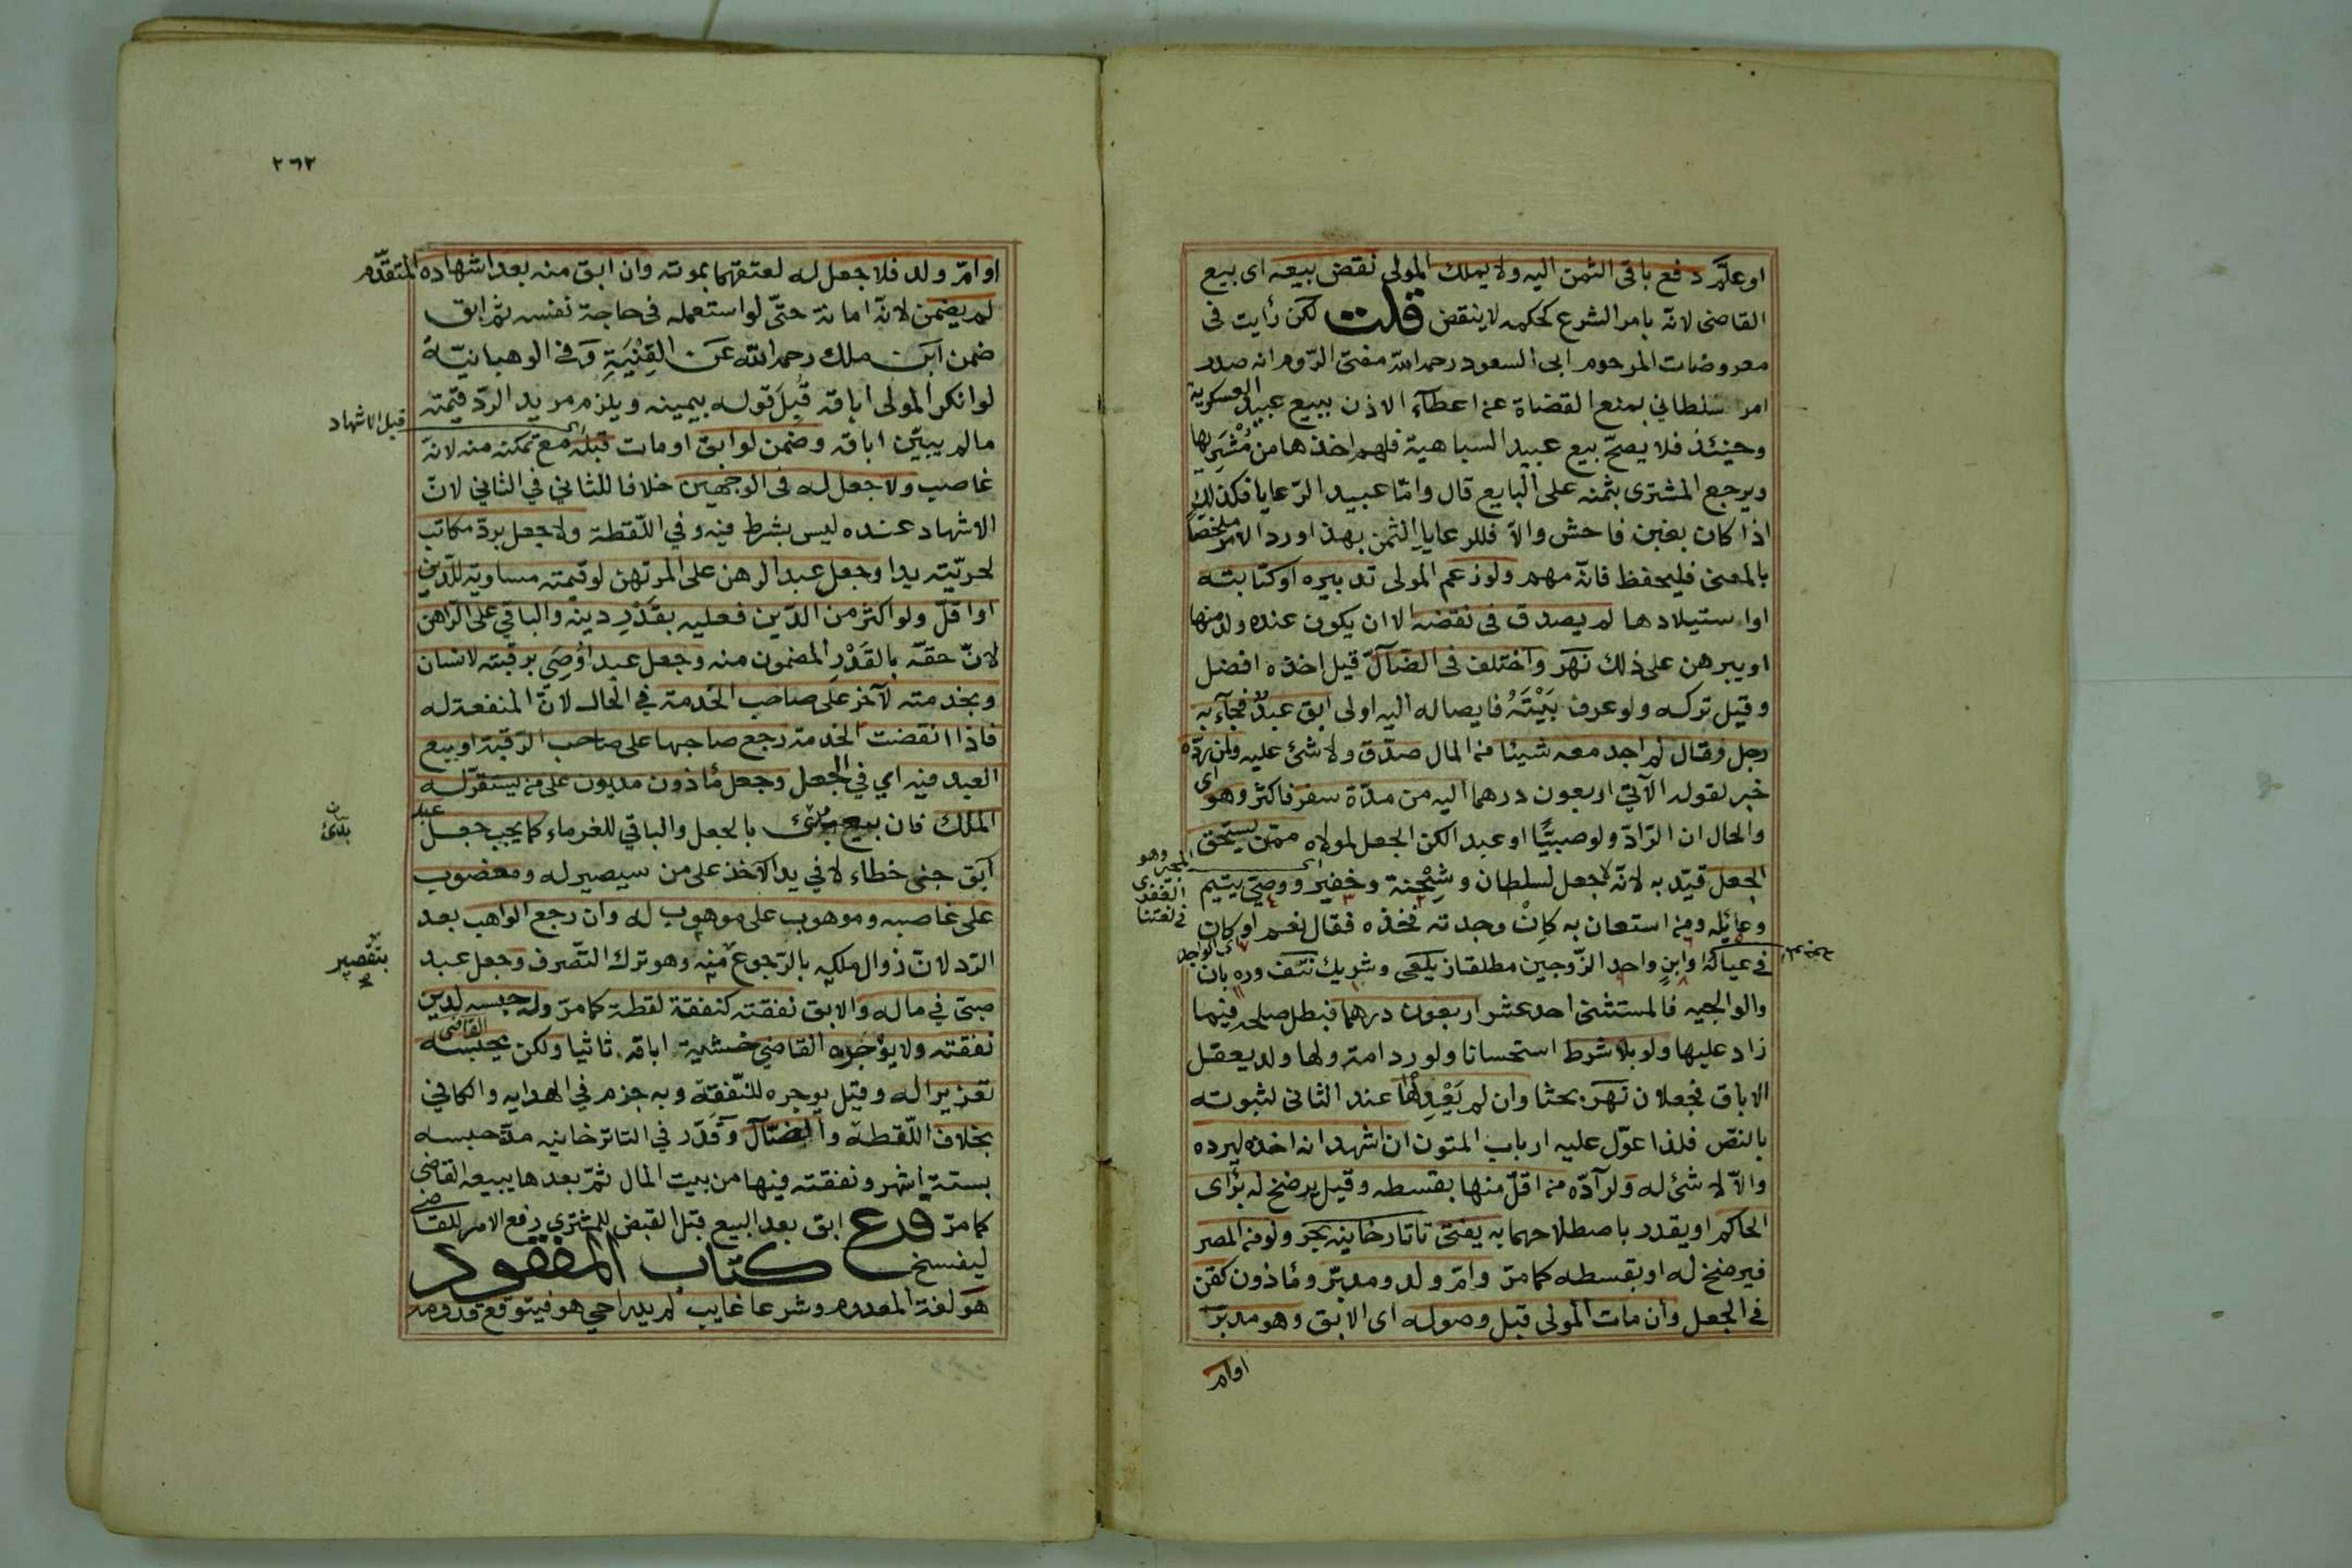 او علم دفع باقى الثمن اليه ولا يملك المولى نقض بيعه اى بيع
القاضى لانه بامر الشرع كحكمه لا ينقض قلت لكن رأيت فى
معروضات المرحوم ابى السعود رحمه الله مفتى الروم انه صدر
امر سلطاني بمنع القضاة عن اعطاء الاذن ببيع عبيد العسكرية
وحينئذ فلا يصح بيع عبيد السباهية فلهم اخذها من مشتريها
ويرجع المشترى بثمنه على البايع قال واما عبيد الرعايا فكذلك
اذا كان بغبن فاحش والا فللرعايا الثمن بهذا ورد الامر ملخصا
بالمعنى فليحفظ فانه مهم ولو زعم المولى تدبيره او كتابته
او استيلادها لم يصدق فى نقضه الا ان يكون عنده ولد منها
او يبرهن على ذلك نهر واختلف فى الضآل قيل اخذه افضل
وقيل تركه ولو عرف بيته فايصاله اليه اولى ابق عبد فجآء به
رجل وقال لم اجد معه شيئا من المال صدق ولا شئ عليه ولمن رده
خبر لقوله الآتي اربعون درهما اليه من مدة سفر فاكثر وهو اى
والحال ان الراد ولو صبيا او عبدا لكن الجعل لمولاه ممن يستحق
الجعل قيد به لانه لا جعل لسلطان وشحنة وخفير ووصى يتيم
وعائله ومن استعان به كان وجدته فخذه فقال نعم او كان
فى عياله وابن واحد الزوجين مطلقا زيلعى وشريك نتف
والوالجيه فالمستثنى احد عشر اربعون درهما فبطل صلحه فيما
زاد عليها ولو بلا شرط استحسانا ولو رد امة ولها ولد يعقل
الاباق فجعلان نهر بحثا وان لم يعدلها عند الثانى لثبوته
بالنص فلذا عول عليه ارباب المتون ان اشهد انه اخذه ليرده
والا لا شئ له ولرآده من اقل منها بقسطه وقيل يرضخ له برأى
الحاكم او يقدر باصطلاحهما به يفتى تاتارخانيه بحر ولو من المصر
فيرضخ له او بقسطه كما مر وام ولد ومدبر ومأذون كقن
فى الجعل وان مات المولى قبل وصوله اى الابق وهو مدبر
او ام
وهو
فى لغتنا
اى الواجد
٢٦٢
او ام ولد فلا جعل له لعتقهما بموته وان ابق منه بعد اشهاده المتقدم
لم يضمن لانه امانة حتى لو استعمله فى حاجة نفسه ثم ابق
ضمن ابن ملك رحمه الله عن القنية وفى الوهبانية
لو انكر المولى اباقه قبل قوله بيمينه ويلزم مريد الرد قيمته
ما لم يبين اباقه وضمن لو ابق او مات قبله مع تمكنه منه لانه
غاصب ولا جعل له فى الوجهين خلافا للثاني في الثاني لان
الاشهاد عنده ليس بشرط فيه وفي اللقطة ولا جعل برد مكاتب
لحريته يدا وجعل عبد الرهن على المرتهن لو قيمته مساوية للدين
او اقل ولو اكثر من الدين فعليه بقدر دينه والباقي على الراهن
لان حقه بالقدر المضمون منه وجعل عبد اوصى برقبته لانسان
وبخدمته لآخر على صاحب الخدمة في الحال لان المنفعة له
فاذا انقضت الخدمة رجع صاحبها على صاحب الرقبة او بيع
العبد فيه اي في الجعل وجعل مأذون مديون على من يستقر له
الملك فان بيع بدئ بالجعل والباقي للغرماء كما يجب جعل عبد
آبق جنى خطاء لا في يد الآخذ على من سيصير له ومغضوب
على غاصبه وموهوب على موهوب له وان رجع الواهب بعد
الرد لان زوال ملكه بالرجوع منه وهو ترك التصرف وجعل عبد
صبي في ماله والابق نفقته كنفقة لقطة كما مر وله حبسه لدين
نفقته ولا يؤجره القاضي خشية اباقه ثانيا ولكن يحبسه القاضى
تعزيرا له وقيل يوجره للنفقة وبه جزم في الهدايه والكافي
بخلاف اللقطة والضآل وقدر في التاترخانيه مدة حبسه
بستة اشهر ونفقته فيها من بيت المال ثم بعدها يبيعه القاضى
كما مر فرع ابق بعد البيع قبل القبض للمشترى رفع الامر للقاضى
ليفسخ كتاب المفقود
هو لغة المعدوم وشرعا غايب لم يدر احي هو فيتوقع قدومه
قبل الاشهاد
بدئ
بتقصير